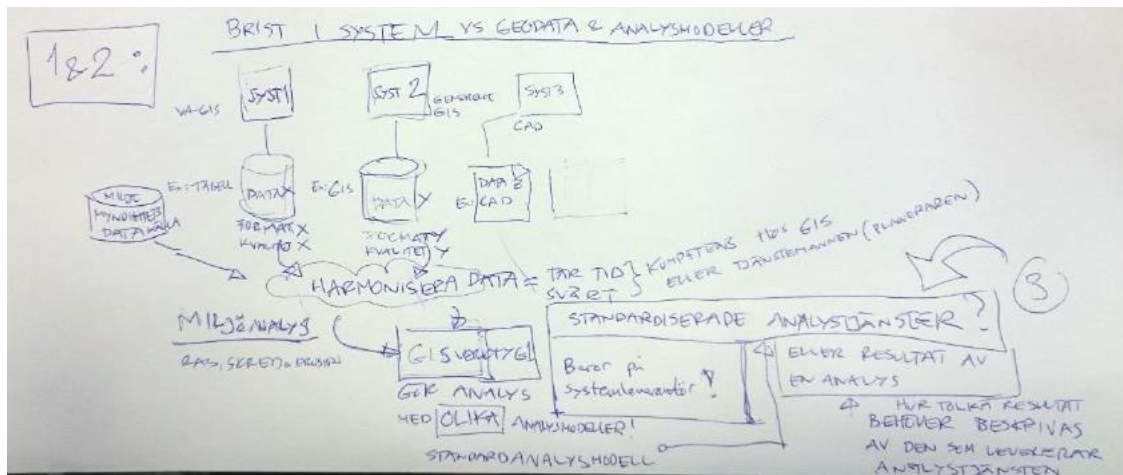 BRIST I SYSTEM VS GEODATA & ANALYSMODELLER
1&2:
VA-GIS
SYST1
SYST 2
GIS
SYST3
CAD
MILJÖ
MYNDIGHETS
DATAKÄLLA
Ex: TABELL
DATA X
FORMAT X
KVALITET X
Ex: GIS
DATA Y
FORMAT Y
KVALITET Y
DATA Z
Ex: CAD
HARMONISERA DATA = TAR TID
SVÅRT
KOMPETENS HOS GIS
ELLER TJÄNSTEMANNEN (PLANERAREN)
3
MILJÖANALYS
RAS, SKRED & EROSION
GIS VERKTYG
GÖR ANALYS
MED OLIKA ANALYSMODELLER!
STANDARDANALYSMODELL
STANDARDISERADE ANALYSTJÄNSTER?
Beror på
systemleverantör!
ELLER RESULTAT AV
EN ANALYS
HUR TOLKA RESULTAT
BEHÖVER BESKRIVAS
AV DEN SOM LEVERERAR
ANALYSTJÄNSTEN